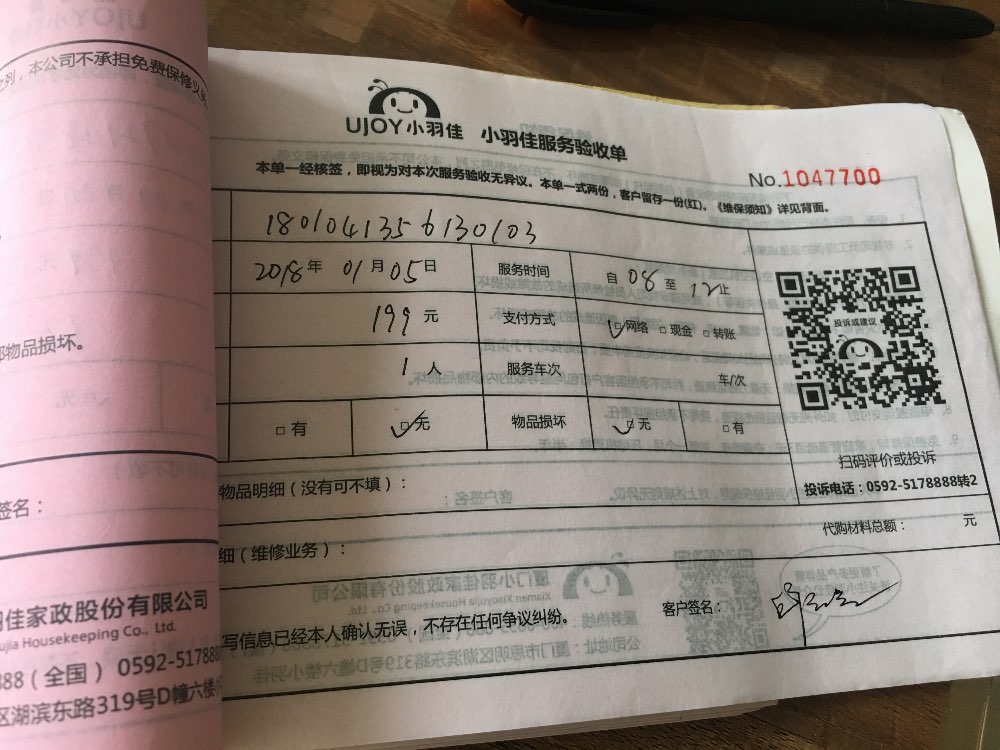 之列，本公司不承担免费保修义务
部物品损坏。
签名：
羽佳家政股份有限公司
ujia Housekeeping Co., Ltd.
888（全国） 0592-5178888
区湖滨东路319号D幢六楼小
UJOY小羽佳 小羽佳服务验收单
No.1047700
本单一经核签，即视为对本次服务验收无异议。本单一式两份，客户留存一份(红)。《维保须知》详见背面。
1801041356130103
2018年 01月05日 服务时间 自 08 至 12止
199元 支付方式 □网络 □现金 □转账
1人 服务车次 车/次
□有 □无 物品损坏 □无 □有
投诉或建议
扫码评价或投诉
投诉电话：0592-5178888转2
物品明细（没有可不填）：
代购材料总额： 元
细（维修业务）：
写信息已经本人确认无误，不存在任何争议纠纷。
客户签名：